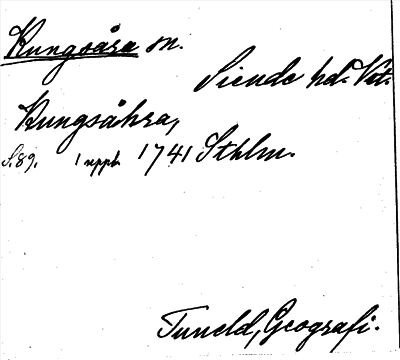 Kungsåra sn.
Siende hd. Vstm.
Kungsåhra,
S.89. 1 uppl. 1741 Sthlm.
Tuneld, Geografi.